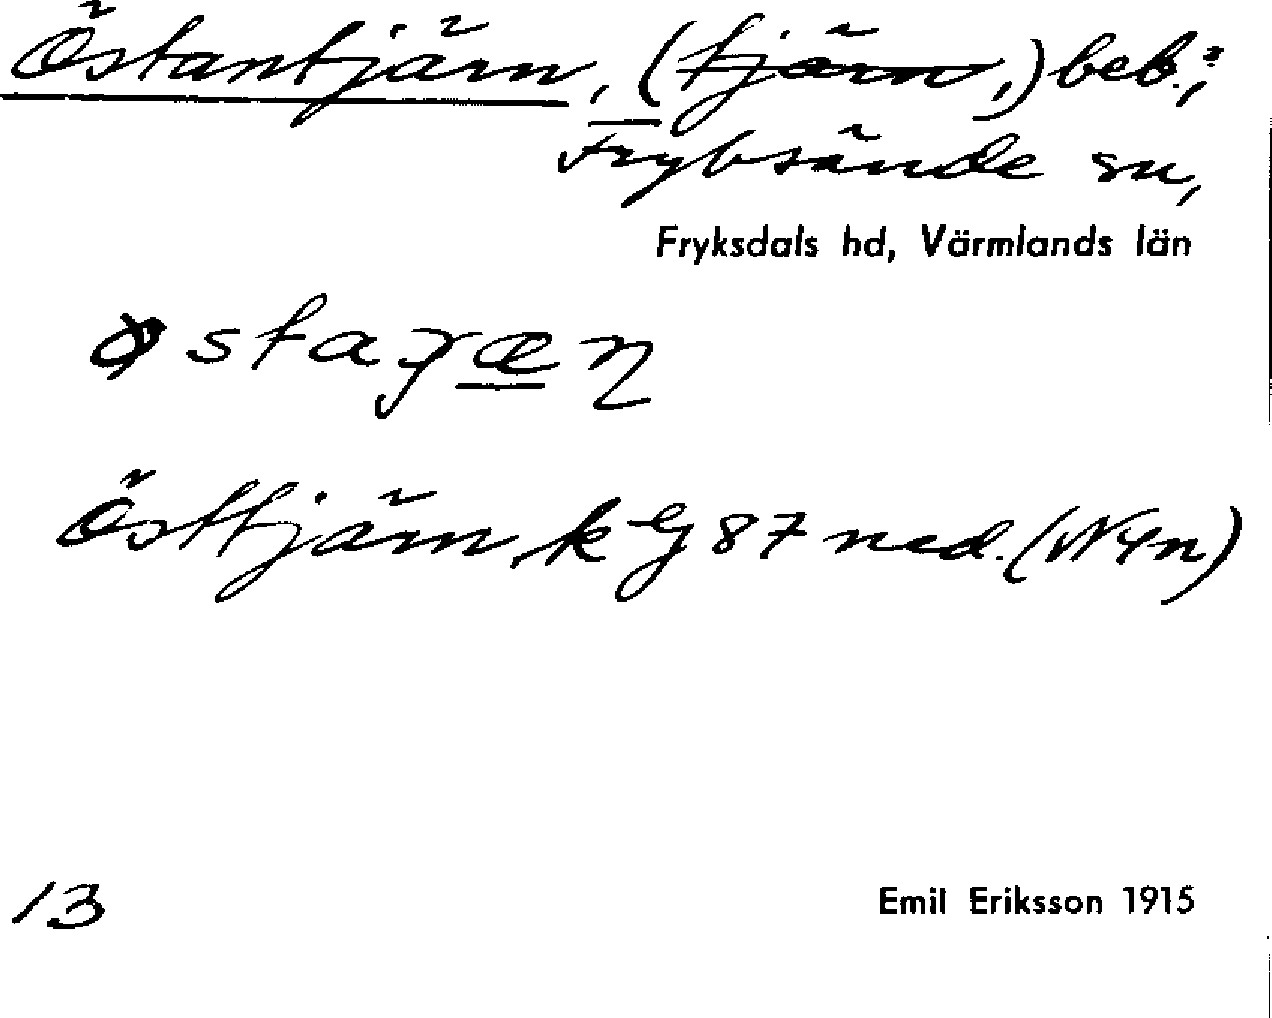 Östantjärn, (tjärn,) beb.;
Fryksände sn,
Fryksdals hd, Värmlands län
Östtjärn, k 87 ned.
13
Emil Eriksson 1915